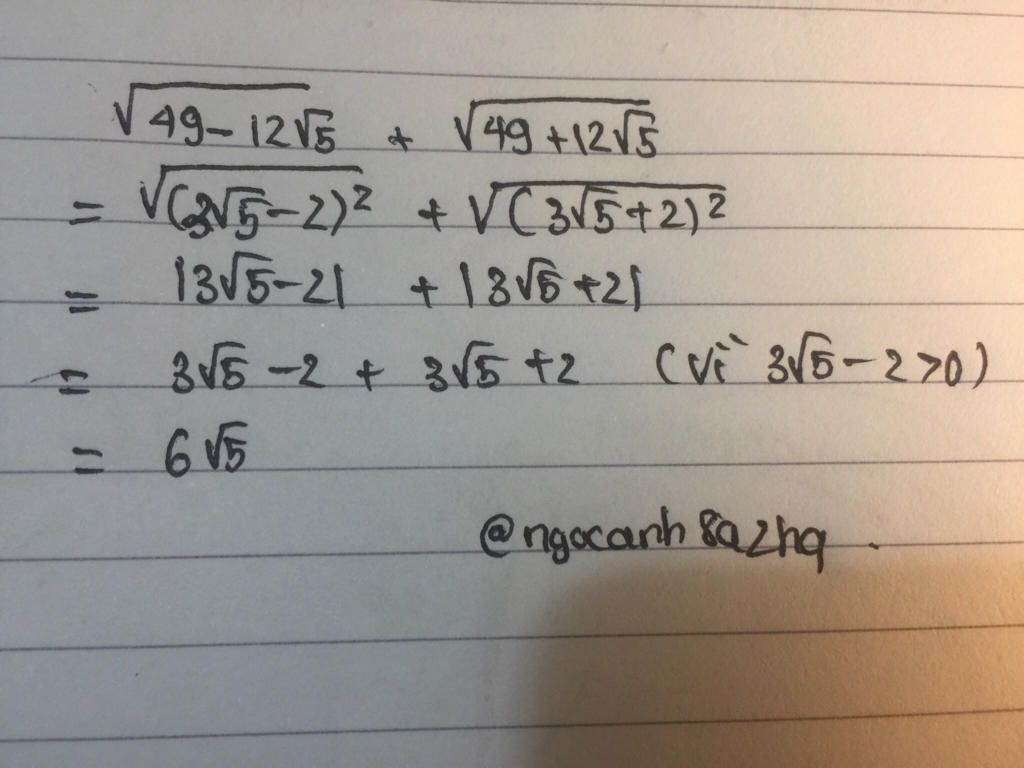 √(49-12√5) + √(49+12√5)
= √(3√5-2)² + √(3√5+2)²
= |3√5-2| + |3√5+2|
= 3√5-2 + 3√5+2 (vì 3√5-2>0)
= 6√5
@ngocanh8a2hq.